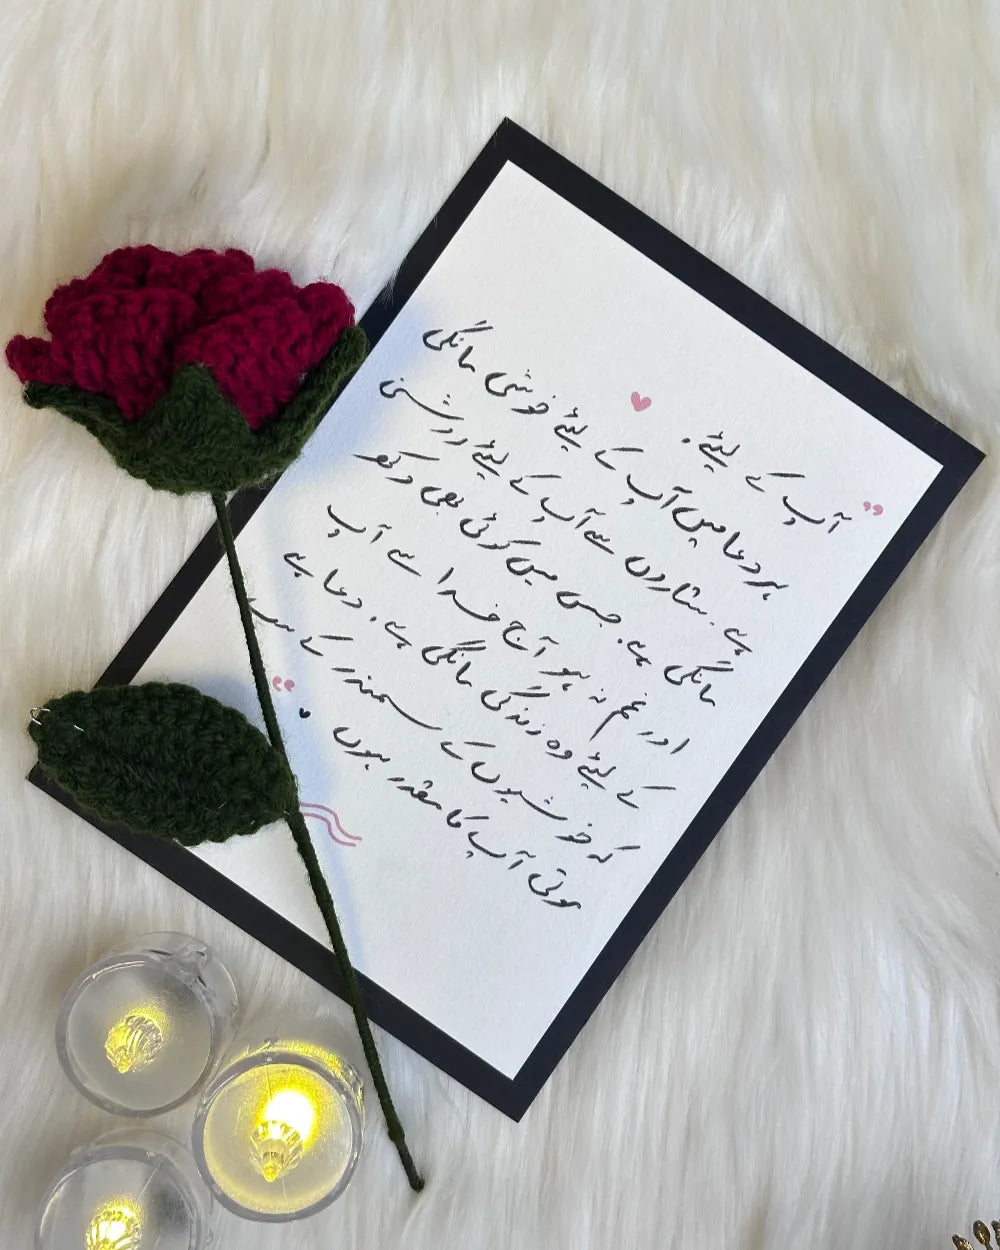 آپ کے لیئے۔
ہر دعا میں آپ کے لیئے خوشی مانگی
ہے۔ ستاروں سے آپ کے لیئے روشنی
مانگی ہے۔ جس میں کوئی بھی دکھ
اور غم نہ ہو آج خدا سے آپ
کے لیئے وہ زندگی مانگی ہے۔ دعا ہے
کہ خوشیوں کے سمندر کے
ہوتی آپ کا مقدر ہوں